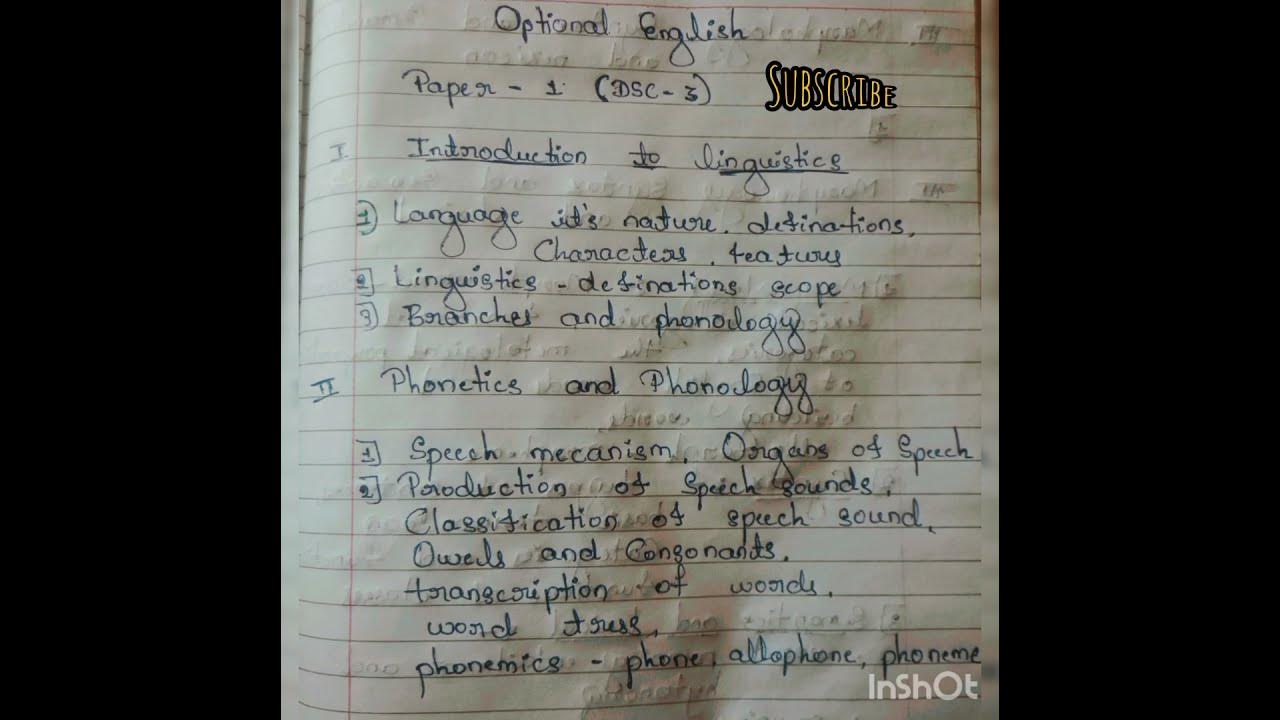 Optional English
Paper - 1. (DSC - 3)
SUBSCRIBE
I Introduction to linguistics
1) Language it's nature. definations,
Characters, features
2] Linguistics - definations scope
3) Branches and phonology
II Phonetics and Phonology
1] Speech mecanism, Organs of Speech
2] Production of Speech sounds,
Classification of speech sound,
Owels and Consonants.
transcription of words.
word tress,
phonemics - phone, allophone, phoneme
InShOt